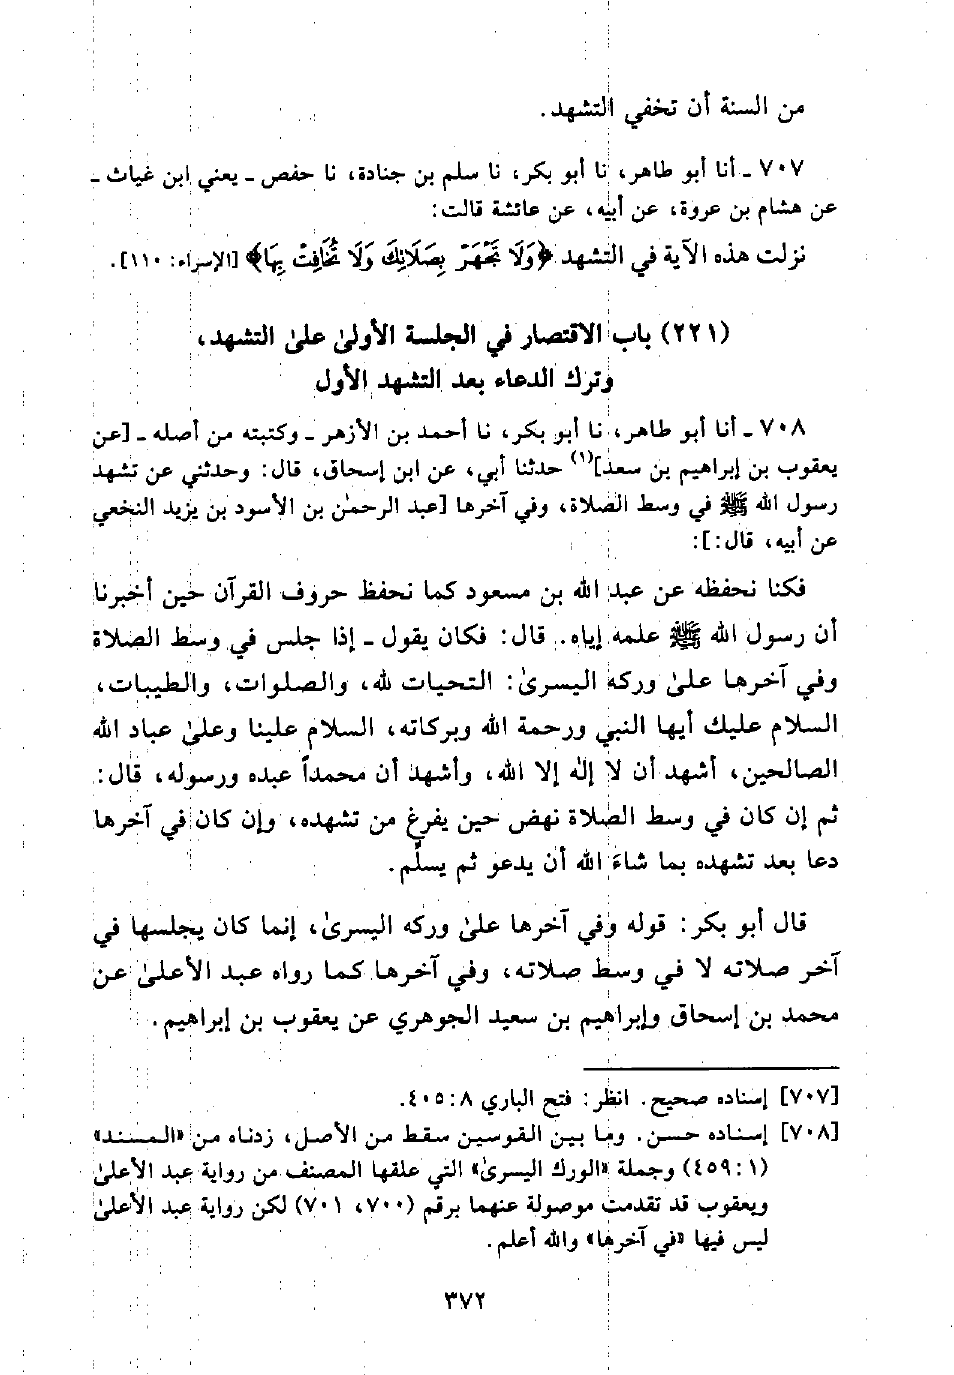 من السنة أن تخفي التشهد.
٧٠٧ ـ أنا أبو طاهر، نا أبو بكر، نا سلم بن جنادة، نا حفص ـ يعني ابن غياث ـ
عن هشام بن عروة، عن أبيه، عن عائشة قالت:
نزلت هذه الآية في التشهد ﴿وَلَا تَجْهَرْ بِصَلَاتِكَ وَلَا تُخَافِتْ بِهَا﴾ [الإسراء: ١١٠].
(٢٢١) باب الاقتصار في الجلسة الأولىٰ علىٰ التشهد،
وترك الدعاء بعد التشهد الأول
٧٠٨ ـ أنا أبو طاهر، نا أبو بكر، نا أحمد بن الأزهر ـ وكتبته من أصله ـ [عن
يعقوب بن إبراهيم بن سعد](١) حدثنا أبي، عن ابن إسحاق، قال: وحدثني عن تشهد
رسول الله ﷺ في وسط الصلاة، وفي آخرها [عبد الرحمٰن بن الأسود بن يزيد النخعي
عن أبيه، قال:]:
فكنا نحفظه عن عبد الله بن مسعود كما نحفظ حروف القرآن حين أخبرنا
أن رسول الله ﷺ علمه إياه. قال: فكان يقول ـ إذا جلس في وسط الصلاة
وفي آخرها علىٰ وركه اليسرىٰ: التحيات لله، والصلوات، والطيبات،
السلام عليك أيها النبي ورحمة الله وبركاته، السلام علينا وعلىٰ عباد الله
الصالحين، أشهد أن لا إلٰه إلا الله، وأشهد أن محمداً عبده ورسوله، قال:
ثم إن كان في وسط الصلاة نهض حين يفرغ من تشهده، وإن كان في آخرها
دعا بعد تشهده بما شاءَ الله أن يدعو ثم يسلّم.
قال أبو بكر: قوله وفي آخرها علىٰ وركه اليسرىٰ، إنما كان يجلسها في
آخر صلاته لا في وسط صلاته، وفي آخرها كما رواه عبد الأعلىٰ عن
محمد بن إسحاق وإبراهيم بن سعيد الجوهري عن يعقوب بن إبراهيم.
[٧٠٧] إسناده صحيح. انظر: فتح الباري ٨:٤٠٥.
[٧٠٨] إسناده حسن. وما بين القوسين سقط من الأصل، زدناه من «المسند»
(١:٤٥٩) وجملة «الورك اليسرىٰ» التي علقها المصنف من رواية عبد الأعلىٰ
ويعقوب قد تقدمت موصولة عنهما برقم (٧٠٠، ٧٠١) لكن رواية عبد الأعلىٰ
ليس فيها «في آخرها» والله أعلم.
٣٧٢